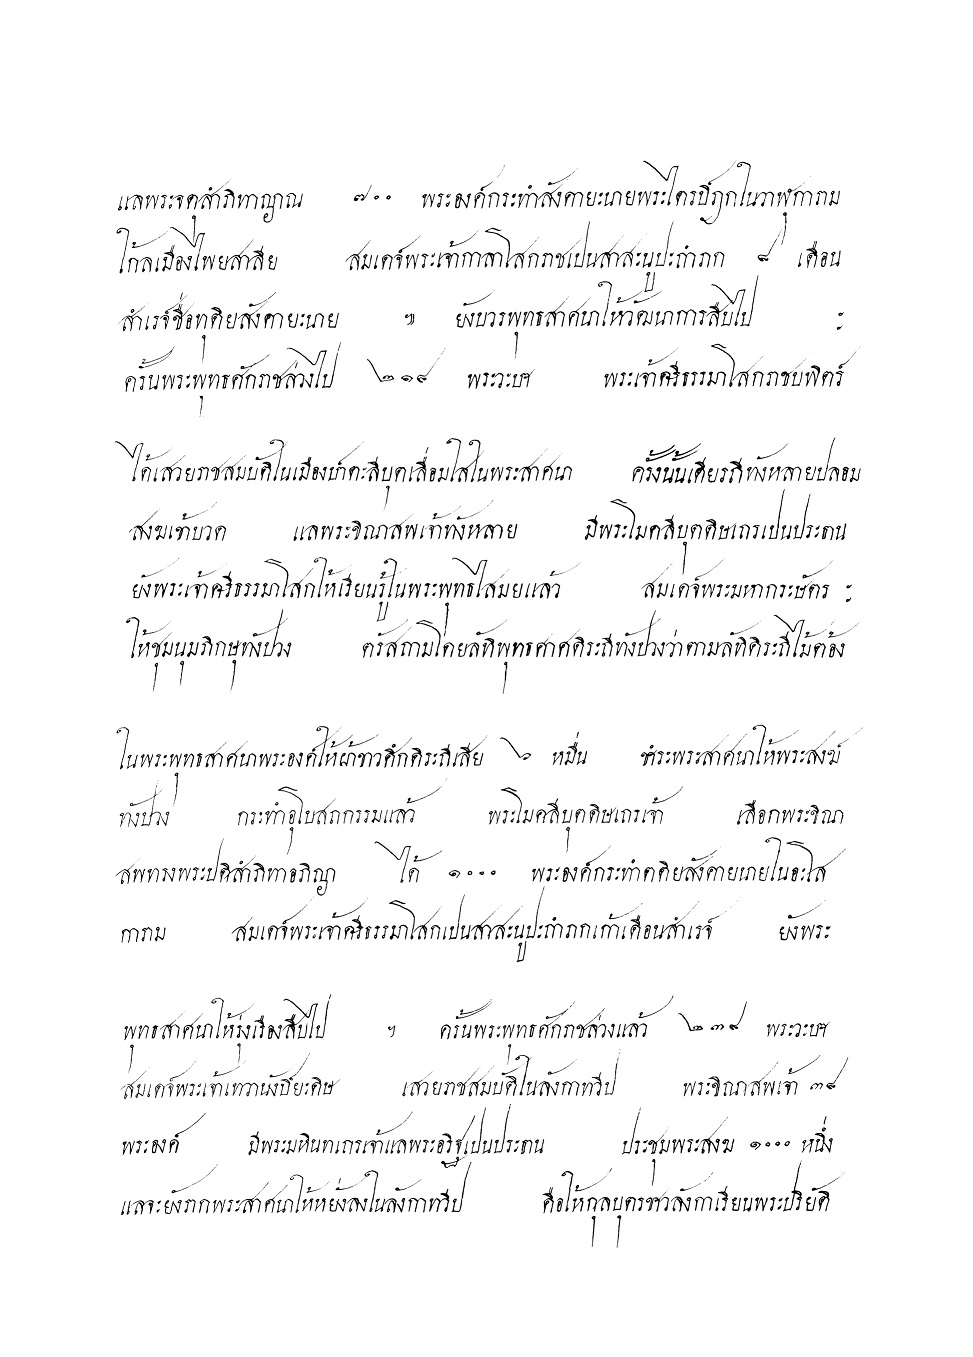 แลพระจตุสำภิทาญาณ ๗๐๐ พระองค์กระทำสังคายะนายพระไตรปิฎกในวาฬุการาม
ใก้ลเมืองไพยสาลีย สมเดจ์พระเจ้ากาลาโสกราชเปนสาสะนูปะถำภก ๘ เดือน
สำเรจ์ชื่อทุติยสังคายะนาย ๚ ยังบวรพุทธสาศนาให้วัฒนาการสืบไป ฯ
ครั้นพระพุทธศักราชล่วงไป ๒๑๘ พระวะษา พระเจ้าศรีธรรมาโสกราชบพิตร์
ได้เสวยราชสมบัติในเมืองปาตะลีบุตเลื่อมใสในพระสาศนา ครั้งนั้นเดียรถีทังหลายปลอม
สงฆเข้าบวด แลพระขิณาสพเจ้าทังหลาย มีพระโมคลีบุตดิษเถรเปนประธาน
ยังพระเจ้าศรีธรรมาโสกให้เรียนรู้ในพระพุทธิไสมยแล้ว สมเดจ์พระมหากระษัตร ฯ
ให้ชุมนุมภิกษุทังปวง ตรัสถามโดยลัทิพุทธศาศดิระถีทังปวงว่าตามลัทิดิระถีไม้ต้อง
ในพระพุทธสาศนาพระองค์ให้ผ้าขาวศึกดิระถีเสีย ๖ หมื่น ชำระพระสาศนาให้พระสงฆ์
ทังปวง กระทำอุโบสถกรรมแล้ว พระโมคลีบุตดิษเถรเจ้า เลือกพระขิณา
สพทรงพระปติสำภิทาอภิญา ได้ ๑๐๐๐ พระองค์กระทำตติยสังคายนายในอะโส
การาม สมเดจ์พระเจ้าศรีธรรมาโสกเปนสาสะนูปะถำภกเก้าเดือนสำเรจ์ ยังพระ
พุทธสาศนาให้รุ่งเรืองสืบไป ฯ ครั้นพระพุทธศักราชล่วงแล้ว ๒๓๘ พระวะษา
สมเดจ์พระเจ้าเทวานังปิยะดิษ เสวยราชสมบัติในลังกาทวีป พระขิณาสพเจ้า ๓๘
พระองค์ มีพระมหินทเถรเจ้าแลพระอริฐเปนประธาน ประชุมพระสงฆ ๑๐๐๐ หนึ่ง
แลจะยังรากพระสาศนาให้หยั่งลงในลังกาทวีป คือให้กุลบุตรชาวลังกาเรียนพระปริยัติ